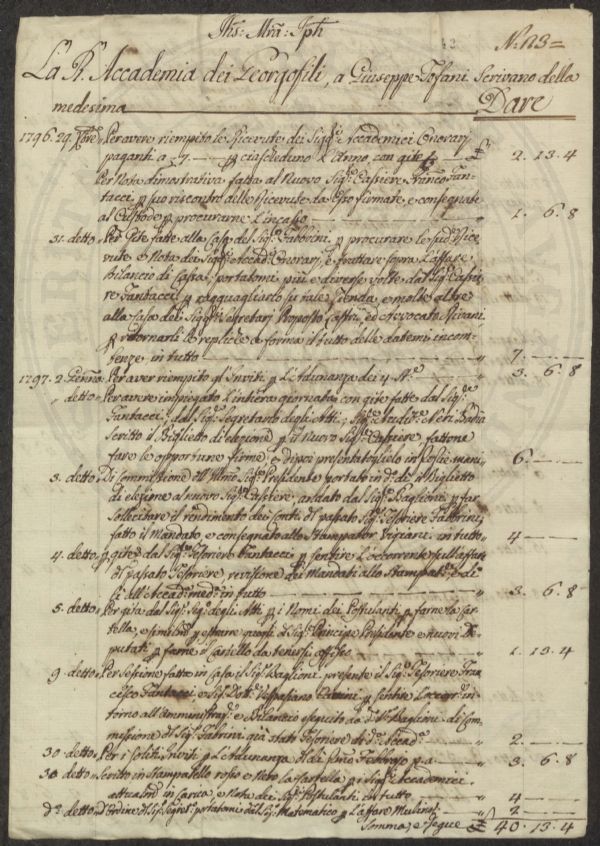 Jhs: Mra: Jph
N. 113 =
La R. Accademia dei Georgofili, a Giuseppe Tofani Scrivano della
medesima Dare
1796. 29. Xbre Per avere riempito le Ricevute dei Sigg.i Accademici Onorarj
paganti a 7 p ciascheduno l'Anno, con gite £ 2. 13. 4
Per Nota dimostrativa fatta al Nuovo Sig.e Cassiere Franco Fan-
tacci p suo riscontro delle Ricevute da Esso firmate, e consegnate
al Custode p procurarne l'incasso " 1. 6. 8
31. detto Per Gite fatte alla Casa del Sig.e Fabbrini p procurare le sud.e Rice-
vute e Nota dei Sig.i Accad.i Onorarj, e trattare sopra l'affare
bilancio di Cassa, portatomi più e diverse volte dal Sig.e Cassie-
re Fantacci p ragguagliarlo su tale azienda, e molte altre
alla Casa dei Sigg.i Segretarj Proposto Lastri, ed Avvocato Rivani
p retornarli le repliche a forma il tutto delle datemi incom-
benze in tutto " 7.
1797. 2. Genn.o Per aver riempito gl'Inviti p l'Adunanza dei 4 St.e " 3. 6. 8
" detto Per avere impiegato l'intiera giornata con gite fatte dal Sig.e
Fantacci, dal Sig.e Segretario degli Atti, Sig.e Audit.e Neri Badia
Scritto il Biglietto di elezione p il nuovo Sig.e Cassiere, fattone
fare le opportune firme, e dipoi presentatoglielo in Proprie mani 6.
3. detto Di Commissione dell'Illmo Sig.e Presidente portato in d.o dì il Biglietto
di elezione al nuovo Sig.e Cassiere, andato dal Sig.e Baglioni p far
sollecitare il rendimento dei Conti del passato Sig.e Tesoriere Fabbrini,
fatto il Mandato, e consegnato allo Stampator Pagani in tutto " 4
4. detto p gite dal Sig.e Tesoriere Fantacci p sentire l'occorrente sull'affare
del passato Tesoriere, revisione dei Mandati allo Stampat.e e di
lì all'Accad.a med.a in tutto " 3. 6. 8
5. detto Per gita dal Sig.e Sig.e degli Atti p i Nomi dei Postulanti p farne la Car-
tella, e simil.e p estrarre quegli del Sig.e Principe Presidente e nuovi De-
putati p farne il Cartello da tenersi affisso " 1. 13. 4
9. detto Per Sessione fatta in Casa il Sig.e Baglioni presente il Sig.e Tesoriere Fran-
cesco Fantacci e Sig.e Dott.e Vespasiano p sentire l'occorr.e in-
torno all'amministraz.e e Bilancio eseguito da d.o Sig.e Baglioni di Com-
missione del Sig.e Fabbrini già stato Tesoriere di d.a Accad.a " 2.
30. detto Per i soliti Inviti p l'Adunanza del dì primo Febbrajo p.a. " 3. 6. 8
30 detto Scritto in Stampatello rosso e Nero la Cartella p i Sig.i Accademici
attual.i in Carica, e Nota dei Sig.i Postulanti in tutto " 4
D.o detto D'Ordine del Sig.e Segret.o portatomi dal Sig.e Matematico p l'affare Mulinot " 2
Somma, e segue £ 40. 13. 4